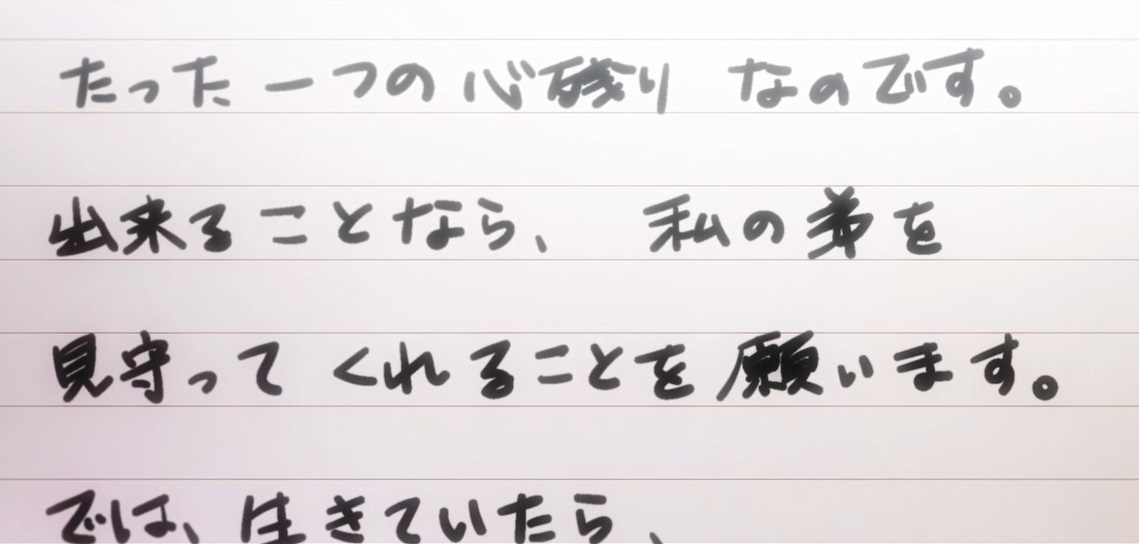 たった一つの心残りなのです。
出来ることなら、私の弟を
見守ってくれることを願います。
では、生きていたら、